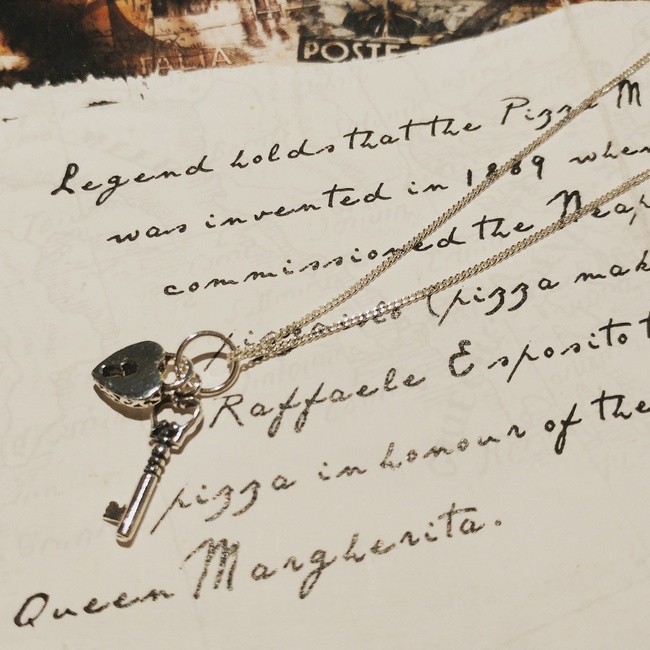 ITALIA
POSTE
Legend holds that the Pizza M
was invented in 1889 when
commissioned the Neap
(pizza mak
Raffaele Esposito t
pizza in honour of the
Queen Margherita.